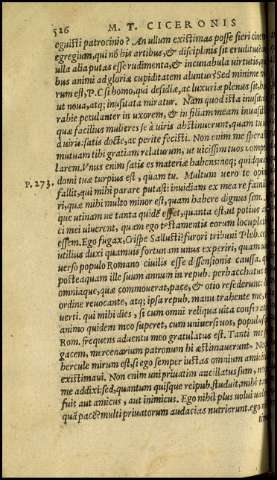 526 M. T. CICERONIS
eguisti patrocinio? An ullum existimas posse fieri ciuem
egregium, qui nõ his artibus, & disciplinis sit eruditus? an
ulla alia putas esse rudimenta, & incunabula virtutis, qui-
bus animi ad gloriæ cupiditatem aluntur? Sed minime mi-
rum est, P. C. si homo, qui desidiæ, ac luxuriæ plenus sit, hæc
ut noua, atq; inusitata miratur. Nam quod ista inusitata
rabie petulanter in vxorem, & in filiam meam inuasisti,
quæ facilius mulieres se à viris abstinuerunt, quam tu vir
à viris: satis docte, ac perite fecisti. Non enim me speraſti
mutuam tibi gratiam relaturum, ut vicissim tuos compel-
larem. Vnus enim satis es materiæ habens: neq; quidquam
P. 273. domi tuæ turpius est, quam tu. Multum vero te opinio
fallit, qui mihi parare putasti inuidiam ex mea re familia-
ri, quæ mihi multo minor est, quam habere dignus sum. At-
que utinam ne tanta quidẽ esset, quanta est, ut potius ami-
ci mei viuerent, quam ego testamentis eorum locupletior
essem. Ego fugax, Crispe Sallusti? furori tribuni Pleb. cessi:
utilius duxi quamuis fortunam unus experiri, quam uni-
uerso populo Romano ciuilis esse dissensionis causa. qui
posteaquam ille suum annum in repub. perbacchatus est,
omniaque, quæ commouerat, pace, & otio resederunt: hoc
ordine reuocante, atq; ipsa repub. manu trahente me, re-
uerti. qui mihi dies, si cum omni reliqua vita conferatur,
animo quidem meo superet, cum uniuersi uos, populusq;
Rom. frequens aduentu meo gratulatus est. Tanti me fu-
gacem, mercenarium patronum hi æstimauerunt. Neque
hercule mirum est, si ego semper iustas omnium amicitias
existimaui. Non enim uni priuatim ancillatus sum, neque
me addixi: sed, quantum quisque reipub. studuit, tantum mihi
fuit aut amicus, aut inimicus. Ego nihil plus uolui valere,
quã pacẽ: multi priuatorum audacias nutrierunt. ego nihil